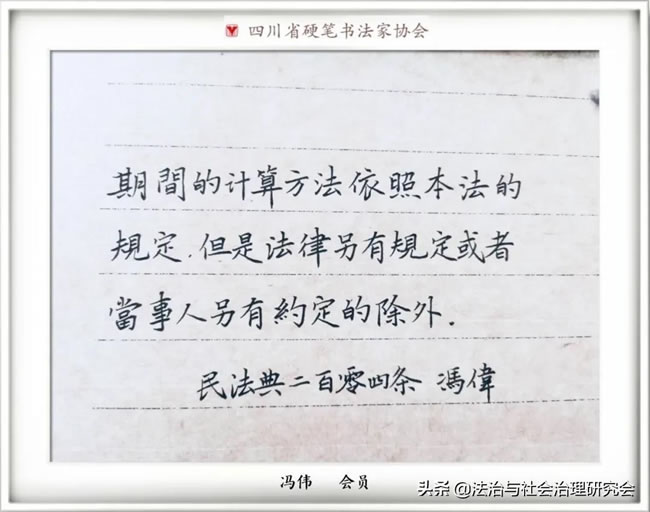 四川省硬笔书法家协会
期間的计算方法依照本法的
規定.但是法律另有規定或者
當事人另有約定的除外.
民法典二百零四条 馮偉
冯伟 会员
头条 @法治与社会治理研究会